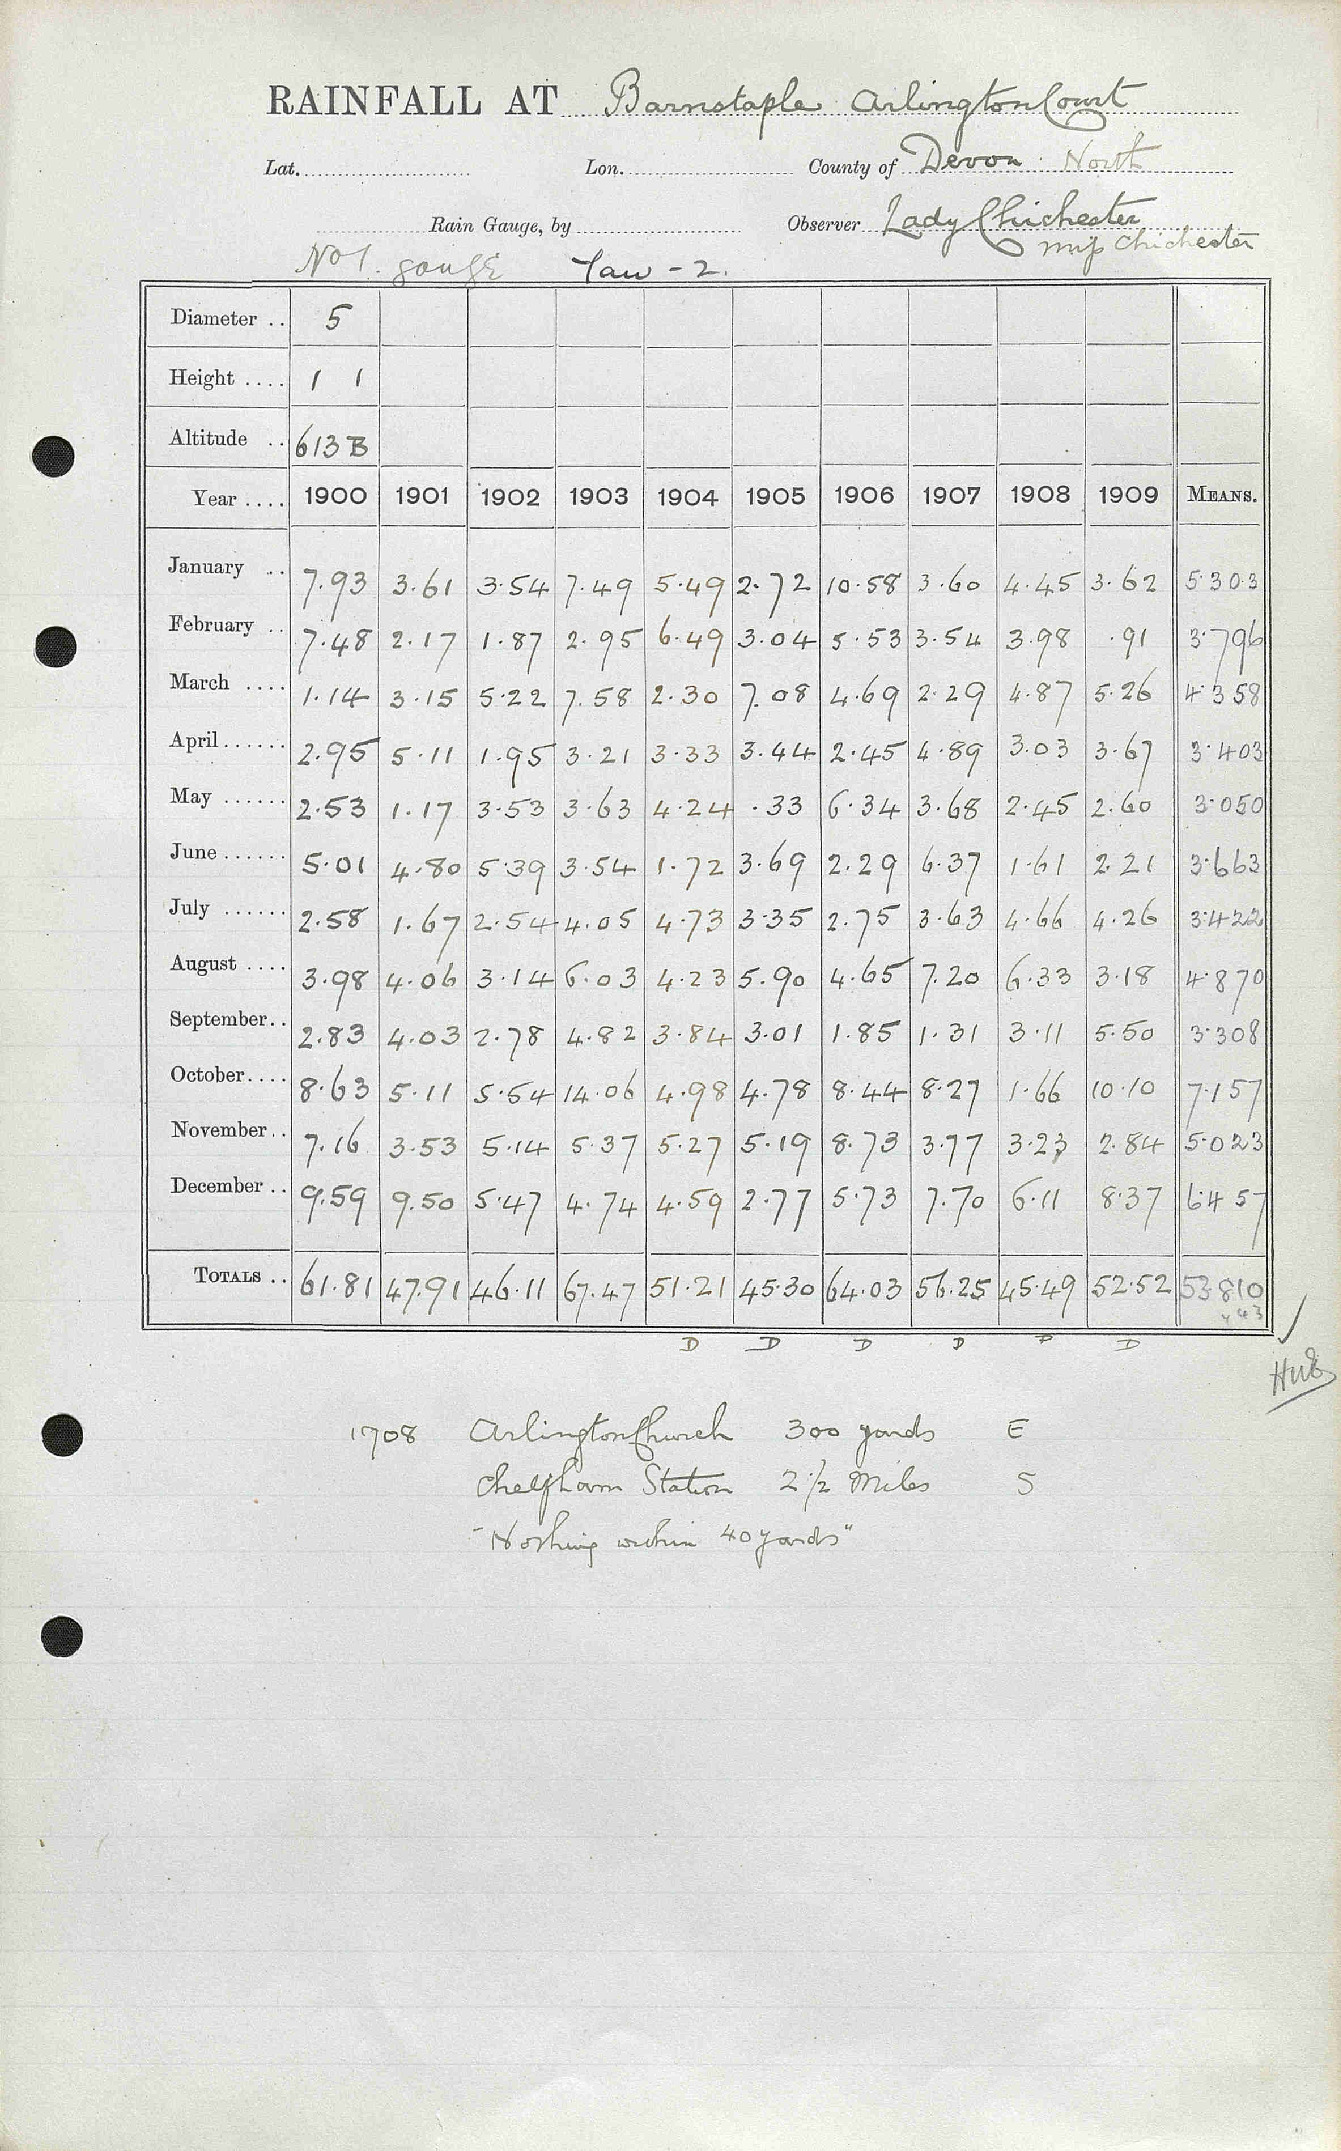 RAINFALL AT Barnstaple Arlington Court
Lat. Lon. County of Devon North
Rain Gauge, by Observer Lady Chichester
Miss Chichester
No 1. gauge Taw - 2.
Diameter .. 5
Height .... 1 1
Altitude .. 613 B
Year .... 1900 1901 1902 1903 1904 1905 1906 1907 1908 1909 MEANS.
January .. 7.93 3.61 3.54 7.49 5.49 2.72 10.58 3.60 4.45 3.62 5.303
February .. 7.48 2.17 1.87 2.95 6.49 3.04 5.53 3.54 3.98 .91 3.796
March .... 1.14 3.15 5.22 7.58 2.30 7.08 4.69 2.29 4.87 5.26 4.358
April ...... 2.95 5.11 1.95 3.21 3.33 3.44 2.45 4.89 3.03 3.67 3.403
May ...... 2.53 1.17 3.53 3.63 4.24 .33 6.34 3.68 2.45 2.60 3.050
June ...... 5.01 4.80 5.39 3.54 1.72 3.69 2.29 6.37 1.61 2.21 3.663
July ...... 2.58 1.67 2.54 4.05 4.73 3.35 2.75 3.63 4.66 4.26 3.422
August .... 3.98 4.06 3.14 6.03 4.23 5.90 4.65 7.20 6.33 3.18 4.870
September.. 2.83 4.03 2.78 4.82 3.84 3.01 1.85 1.31 3.11 5.50 3.308
October.... 8.63 5.11 5.54 14.06 4.98 4.78 8.44 8.27 1.66 10.10 7.157
November.. 7.16 3.53 5.14 5.37 5.27 5.19 8.73 3.77 3.23 2.84 5.023
December .. 9.59 9.50 5.47 4.74 4.59 2.77 5.73 7.70 6.11 8.37 6.457
TOTALS .. 61.81 47.91 46.11 67.47 51.21 45.30 64.03 56.25 45.49 52.52 53.810
D D D D D D
1708 Arlington Church 300 yards E
Chelfham Station 2 1/2 Miles S
"Nothing within 40 yards"